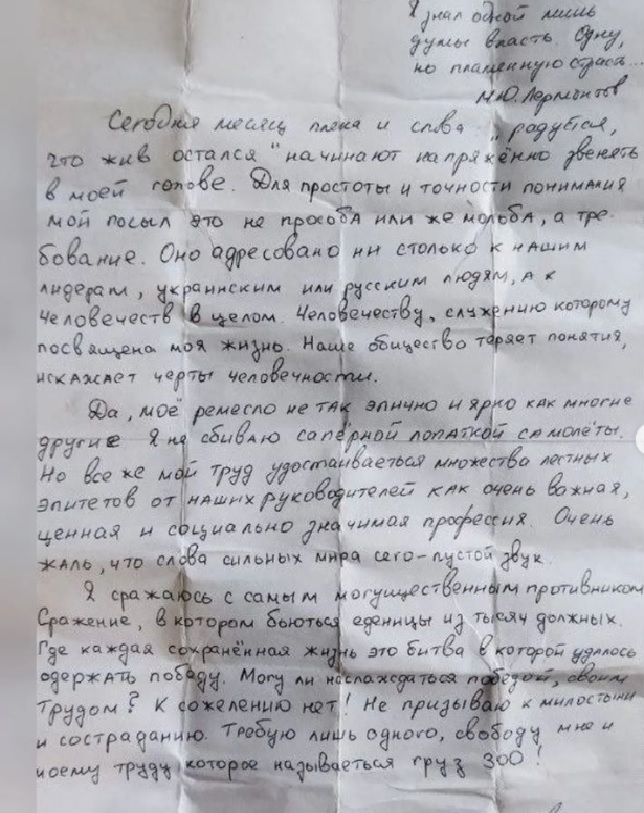 Я знал одной лишь
думы власть. Одну,
но пламенную страс...
М.Ю. Лермонтов
Сегодня месяц плена и слова „радуйся,
что жив остался" начинают напряжённо звенять
в моей голове. Для простоты и точности понимания
мой посыл это не прособа или же мольба, а тре-
бование. Оно адресовано ни столько к нашим
лидерам, украинским или русским людям, а к
человечеств в целом. Человечеству, служению которому
посвящена моя жизнь. Наше общество теряет понятия,
искажает черты человечности.
Да, моё ремесло не так эпично и ярко как многие
другие Я не сбиваю сапёрной лопаткой самолёты.
Но все же мой труд удостаиваеться множества лестных
эпитетов от наших руководителей как очень важная,
ценная и социально значимая профессия. Очень
жаль, что слова сильных мира сего-пустой звук.
Я сражаюсь с самым могущественным противником
Сражение, в котором бьються еденицы из тысяч должных.
Где каждая сохранённая жизнь это битва в которой удалось
одержать победу. Могу ли наслаждаться победой, своим
трудом? К сожелению нет! Не призываю к милостыни
и состраданию. Требую лишь одного, свободу мне и
моему труду которое называеться груз 300!